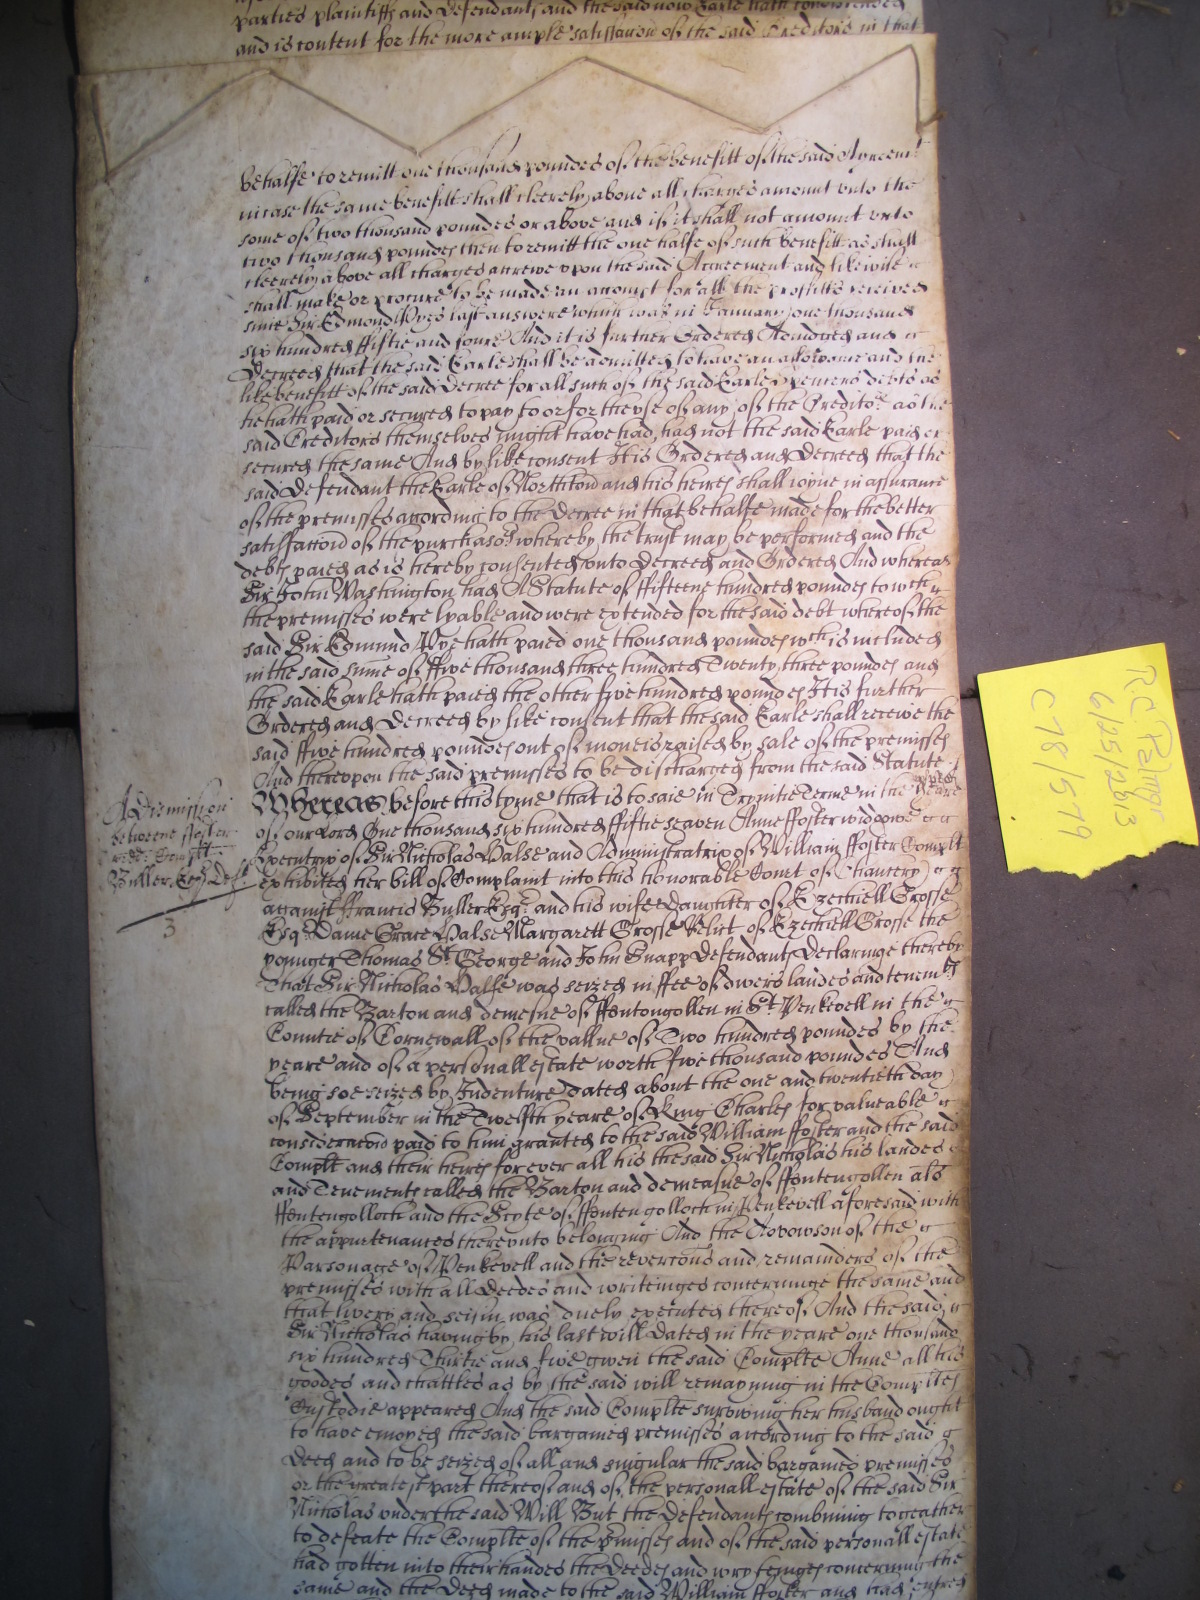 parties plaintiffs and defendants and the said now Earle hath condescended
and is content for the more ample satisfaccion of the said Creditors in that
behalfe to remitt one thousand poundes of the benefitt of the said Agreemt
in case the same benefitt shall cleerely above all charges amount unto the
some of two thousand poundes or above and if it shall not amount unto
two thousand poundes then to remitt the one halfe of such benefitt as shall
cleerely above all charges accrewe upon the said Agreement and likewise
shall make or procure to be made an accompt for all the proffitts received
since Sir Edmond Pyes last answere which was in January one thousand
six hundred fiftie and foure And it is further Ordered Adiudged and
Decreed that the said Earle shall be admitted to have an allowance and the
like benefitt of the said Decree for all such of the said Earle debts as
he hath paid or secured to pay to or for the use of any of the Creditors as the
said Creditors themselves might have had, had not the said Earle paid or
secured the same And by like consent It is Ordered and Decreed that the
said Defendant the Earle of and his heires shall ioyne in assurance
of the premisses according to the decree in that behalfe made for the better
satisfaccion of the purchasors whereby the trust may be performed and the
debts paied as is hereby consented unto Decreed and Ordered And whereas
Sir John Washington had A Statute of ffifteene hundred poundes to wch
the premisses were lyable and were extended for the said debt whereof the
said Sir Edmund Pye hath paied one thousand poundes wch is included
in the said sume of ffive thousand three hundred Twenty three poundes and
the said Earle hath paied the other five hundred poundes It is further
Ordered and Decreed by like consent that the said Earle shall receive the
said ffive hundred poundes out of moneis raised by sale of the premisses
And thereupon the said premisses to be discharged from the said Statute
Whereas before this tyme that is to saie in Trynitie Terme in the yeare
of our Lord One thousand six hundred ffiftie seaven Anne ffoster widdowe
Executrix of Sir Nicholas Halse and Administratrix of William ffoster Complt
exhibited her bill of Complaint into this honorable Court of Chancery
against ffrancis Buller Esqr and his wife daughter of Ezechiell Grosse
Esqr Dame Grace Halse Margarett Grosse Relict of Ezechiell Grosse the
younger Thomas St George and John Snapp Defendants Declaringe thereby
That Sir Nicholas Halse was seized in ffee of divers landes and tenemts
called the Barton and demesne of ffentongollen in St Penkevell in the
Countie of Cornewall of the vallue of Two hundred poundes by the
yeare and of a personall estate worth five thousand poundes And
being soe seized by Indenture dated about the one and twentieth day
of September in the Twelfth yeare of King Charles for valueable
consideracion paid to him granted to the said William ffoster and the said
Complt and their heires for ever all his the said Sir Nicholas his landes
and Tenements called the Barton and demeasne of ffentengollen als
ffentengolloch and the Scyte of ffentengolloch in Penkevell aforesaid with
the appurtenances thereunto belonging And the Advowson of the
Parsonage of Penkevell and the revercons and remainders of the
premisses with all Deedes and writeinges concerninge the same and
that livery and seisin was duely executed thereof And the said
Sir Nicholas having by his last will Dated in the yeare one thousand
six hundred Thirtie and five given the said Complte Anne all his
goodes and chattles as by the said will remayning in the Compltes
Custodie appeared And the said Complte surviving her husband ought
to have enioyed the said bargained premisses according to the said
Deed and to be seized of all and singular the said bargained premisses
or the greatest part thereof and of the personall estate of the said Sir
Nicholas under the said Will But the Defendants combining togeather
to defeate the Complte of the premisses and of the said personall estate
had gotten into their handes the Deedes and wryteinges concerning the
same and the Deed made to the said William ffoster and had entred
A Dismission
betweene ffoster
widd: Complt
Buller Esqr Deft
3
R.C Palmer
6/25/2013
C78/579